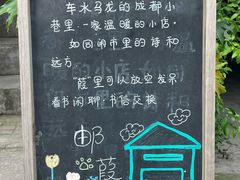 车水马龙的成都小
巷里·一家温暖的小店,
如同闹市里的诗和
远方
"葭"里可以放空发呆
看书闲聊·书信交换
邮
葭